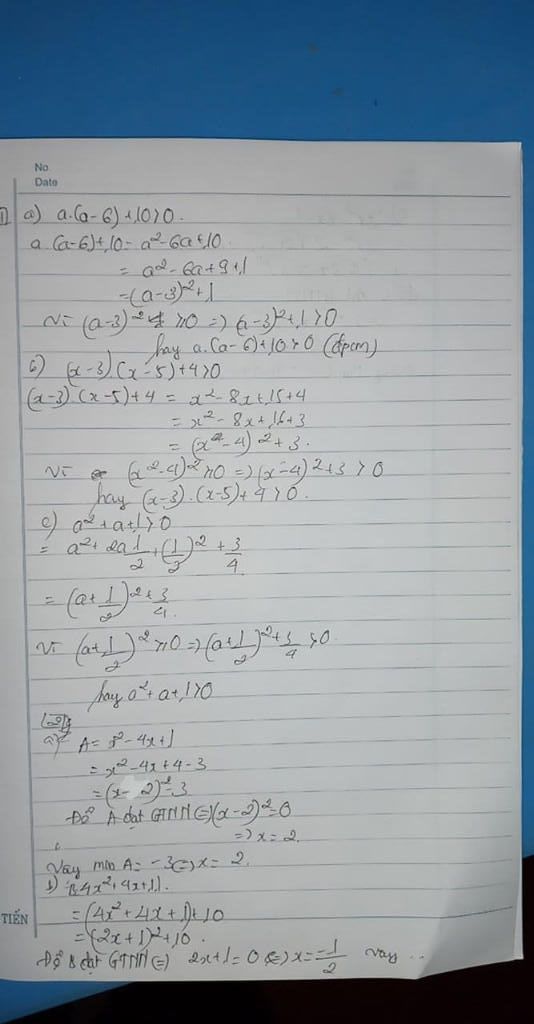 No.
Date
1 a) a.(a-6)+10>0.
a.(a-6)+10 = a²-6a+10
= a²-6a+9+1
=(a-3)²+1
Vì (a-3)² ≥0 => (a-3)²+1>0
hay a.(a-6)+10>0 (đpcm)
b) (x-3)(x-5)+4>0
(x-3).(x-5)+4 = x²-8x+15+4
= x²-8x+16+3
= (x²-4)²+3.
Vì (x²-4)²≥0 => (x-4)²+3>0
hay (x-3).(x-5)+4>0.
c) a²+a+1>0
= a²+2a1/2+(1/2)²+3/4
= (a+1/2)²+3/4.
Vì (a+1/2)²≥0 => (a+1/2)²+3/4>0.
hay a²+a+1>0
(2)
a) A= x²-4x+1
= x²-4x+4-3
= (x-2)²-3
Để A đạt GTNN <=> (x-2)²=0
=> x=2.
Vậy min A= -3 <=> x= 2.
b) B 4x²+4x+11.
= (4x²+4x+1)+10
= (2x+1)²+10.
TIẾN
Để B đạt GTNN <=> 2x+1=0 <=> x=-1/2 Vậy ..